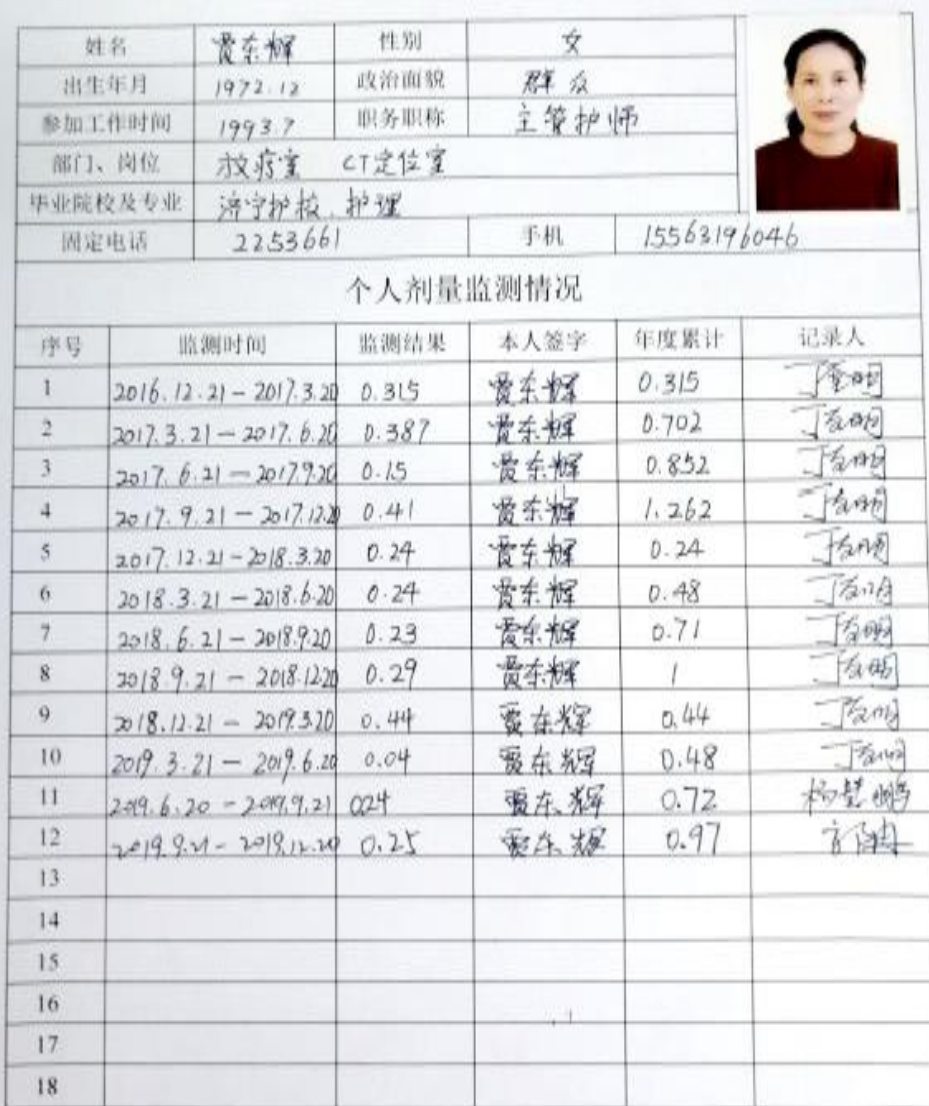 姓名 贾东辉 性别 女
出生年月 1972.12 政治面貌 群众
参加工作时间 1993.7 职务职称 主管护师
部门、岗位 放疗室 CT定位室
毕业院校及专业 济宁护校、护理
固定电话 2253661 手机 15563196046
个人剂量监测情况
序号 监测时间 监测结果 本人签字 年度累计 记录人
1 2016.12.21-2017.3.20 0.315 贾东辉 0.315
2 2017.3.21-2017.6.20 0.387 贾东辉 0.702
3 2017.6.21-2017.9.20 0.15 贾东辉 0.852
4 2017.9.21-2017.12.20 0.41 贾东辉 1.262
5 2017.12.21-2018.3.20 0.24 贾东辉 0.24
6 2018.3.21-2018.6.20 0.24 贾东辉 0.48
7 2018.6.21-2018.9.20 0.23 贾东辉 0.71
8 2018.9.21-2018.12.20 0.29 贾东辉 1
9 2018.12.21-2019.3.20 0.44 贾东辉 0.44
10 2019.3.21-2019.6.20 0.04 贾东辉 0.48
11 2019.6.20-2019.9.21 024 贾东辉 0.72
12 2019.9.21-2019.12.20 0.25 贾东辉 0.97
13
14
15
16
17
18